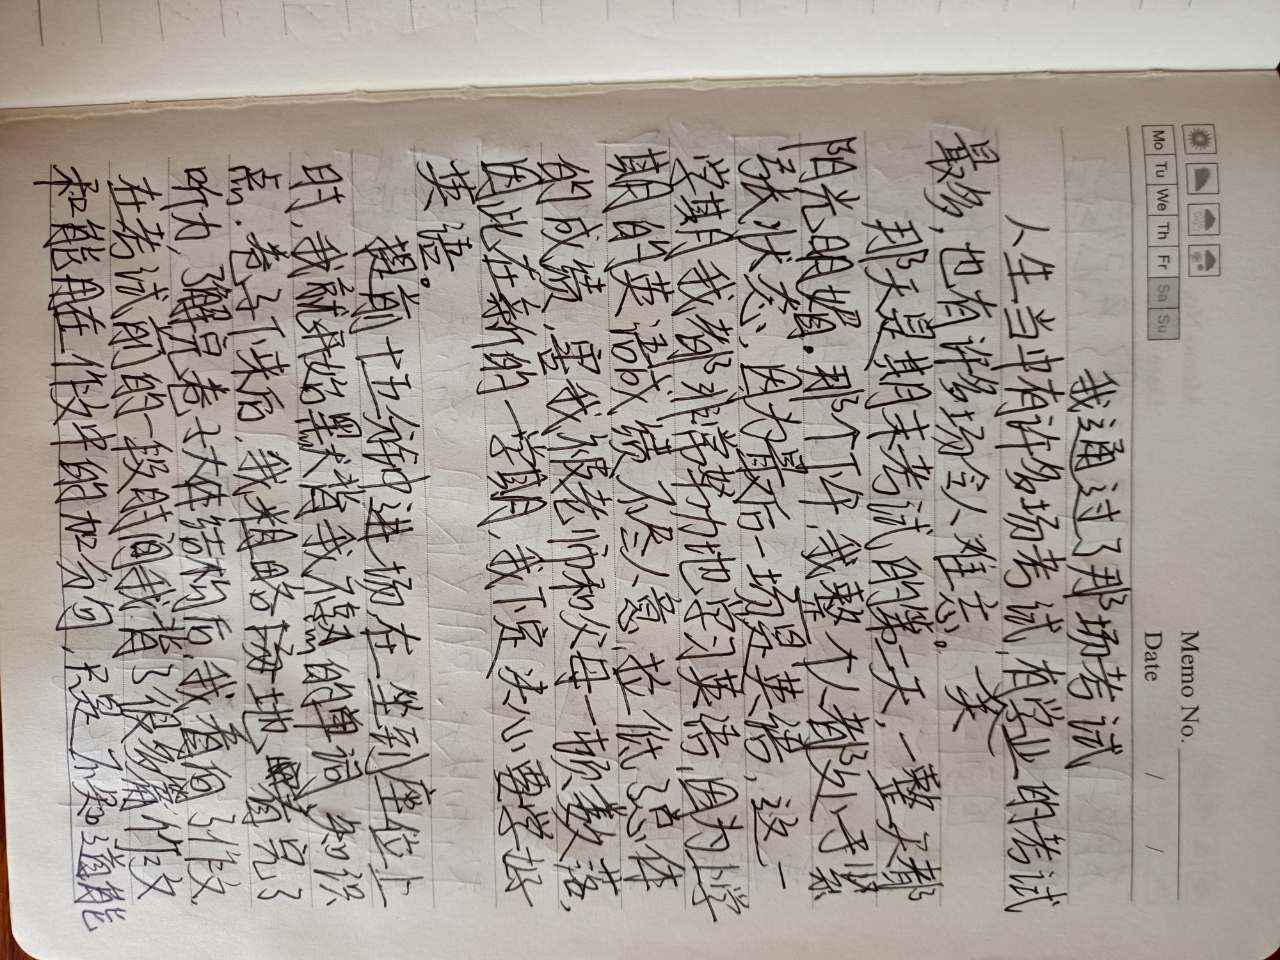 Memo No.
Mo Tu We Th Fr Sa Su
Date / /
我通过了那场考试
人生当中有许多场考试,有学业的考试
最多,也有许多场令人难忘。 类
那天是期末考试的第二天,一整天都
阳光明媚.那个下午,我整个人都处于紧
张状态,因为最后一场是英语,这一
学期我都非常努力地学习英语,因为上学
期的英语成绩不尽人意,拉低了总体
的成绩,害我被老师和父母一顿数落,
因此在新的一学期,我下定决心要学好
英语。
提前十五分钟进场在一坐到座位上
时,我就开始默背我不熟的单词、知识
点.卷子下来后,我粗略地看完了
听力,了解完卷子大在结构后,我看向了作文
在考试前的一段时间我背了很多篇作文
和能用在作文中的加分句,只是不知道能